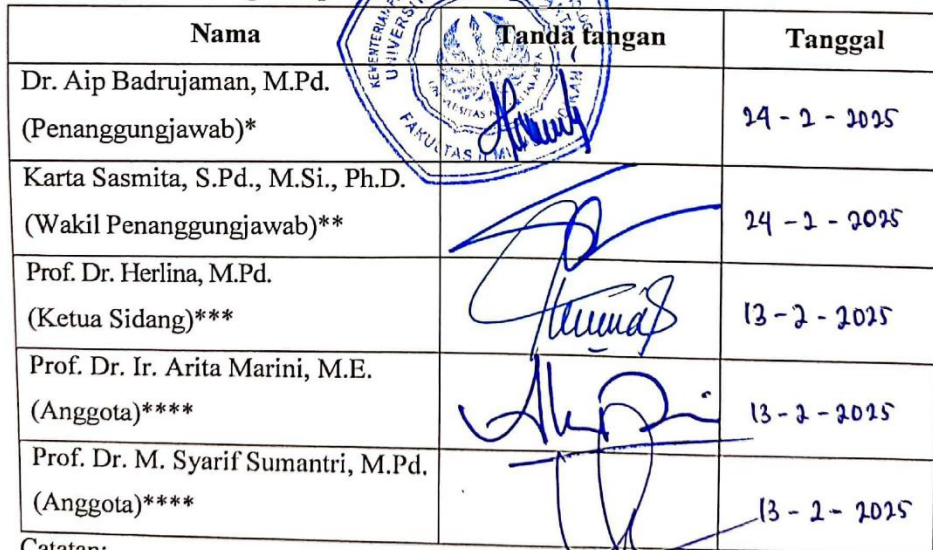 Nama Tanda tangan Tanggal
Dr. Aip Badrujaman, M.Pd.
(Penanggungjawab)* 24 - 2 - 2025
Karta Sasmita, S.Pd., M.Si., Ph.D.
(Wakil Penanggungjawab)** 24 - 2 - 2025
Prof. Dr. Herlina, M.Pd.
(Ketua Sidang)*** 13 - 2 - 2025
Prof. Dr. Ir. Arita Marini, M.E.
(Anggota)**** 13 - 2 - 2025
Prof. Dr. M. Syarif Sumantri, M.Pd.
(Anggota)**** 13 - 2 - 2025
Catatan: